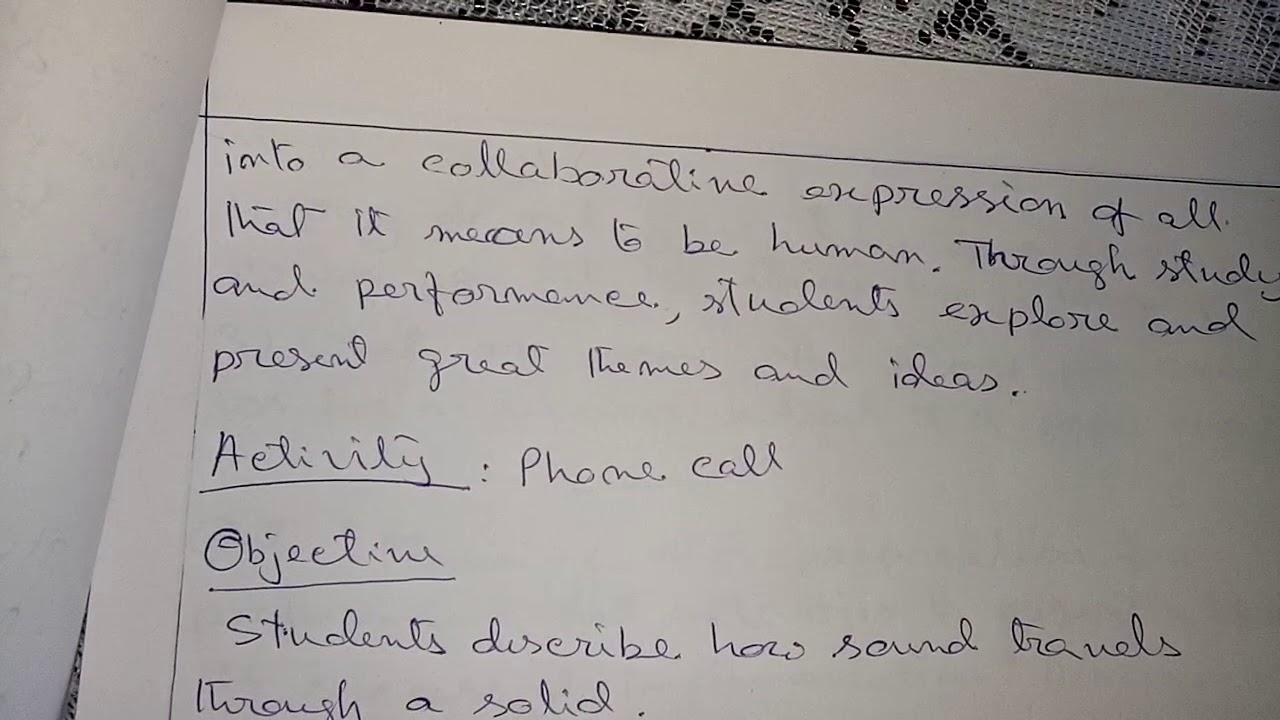 into a collaborative expression of all
that it means to be human. Through study
and performance, students explore and
present great themes and ideas.
Activity : Phone call
Objective
Students describe how sound travels
through a solid.